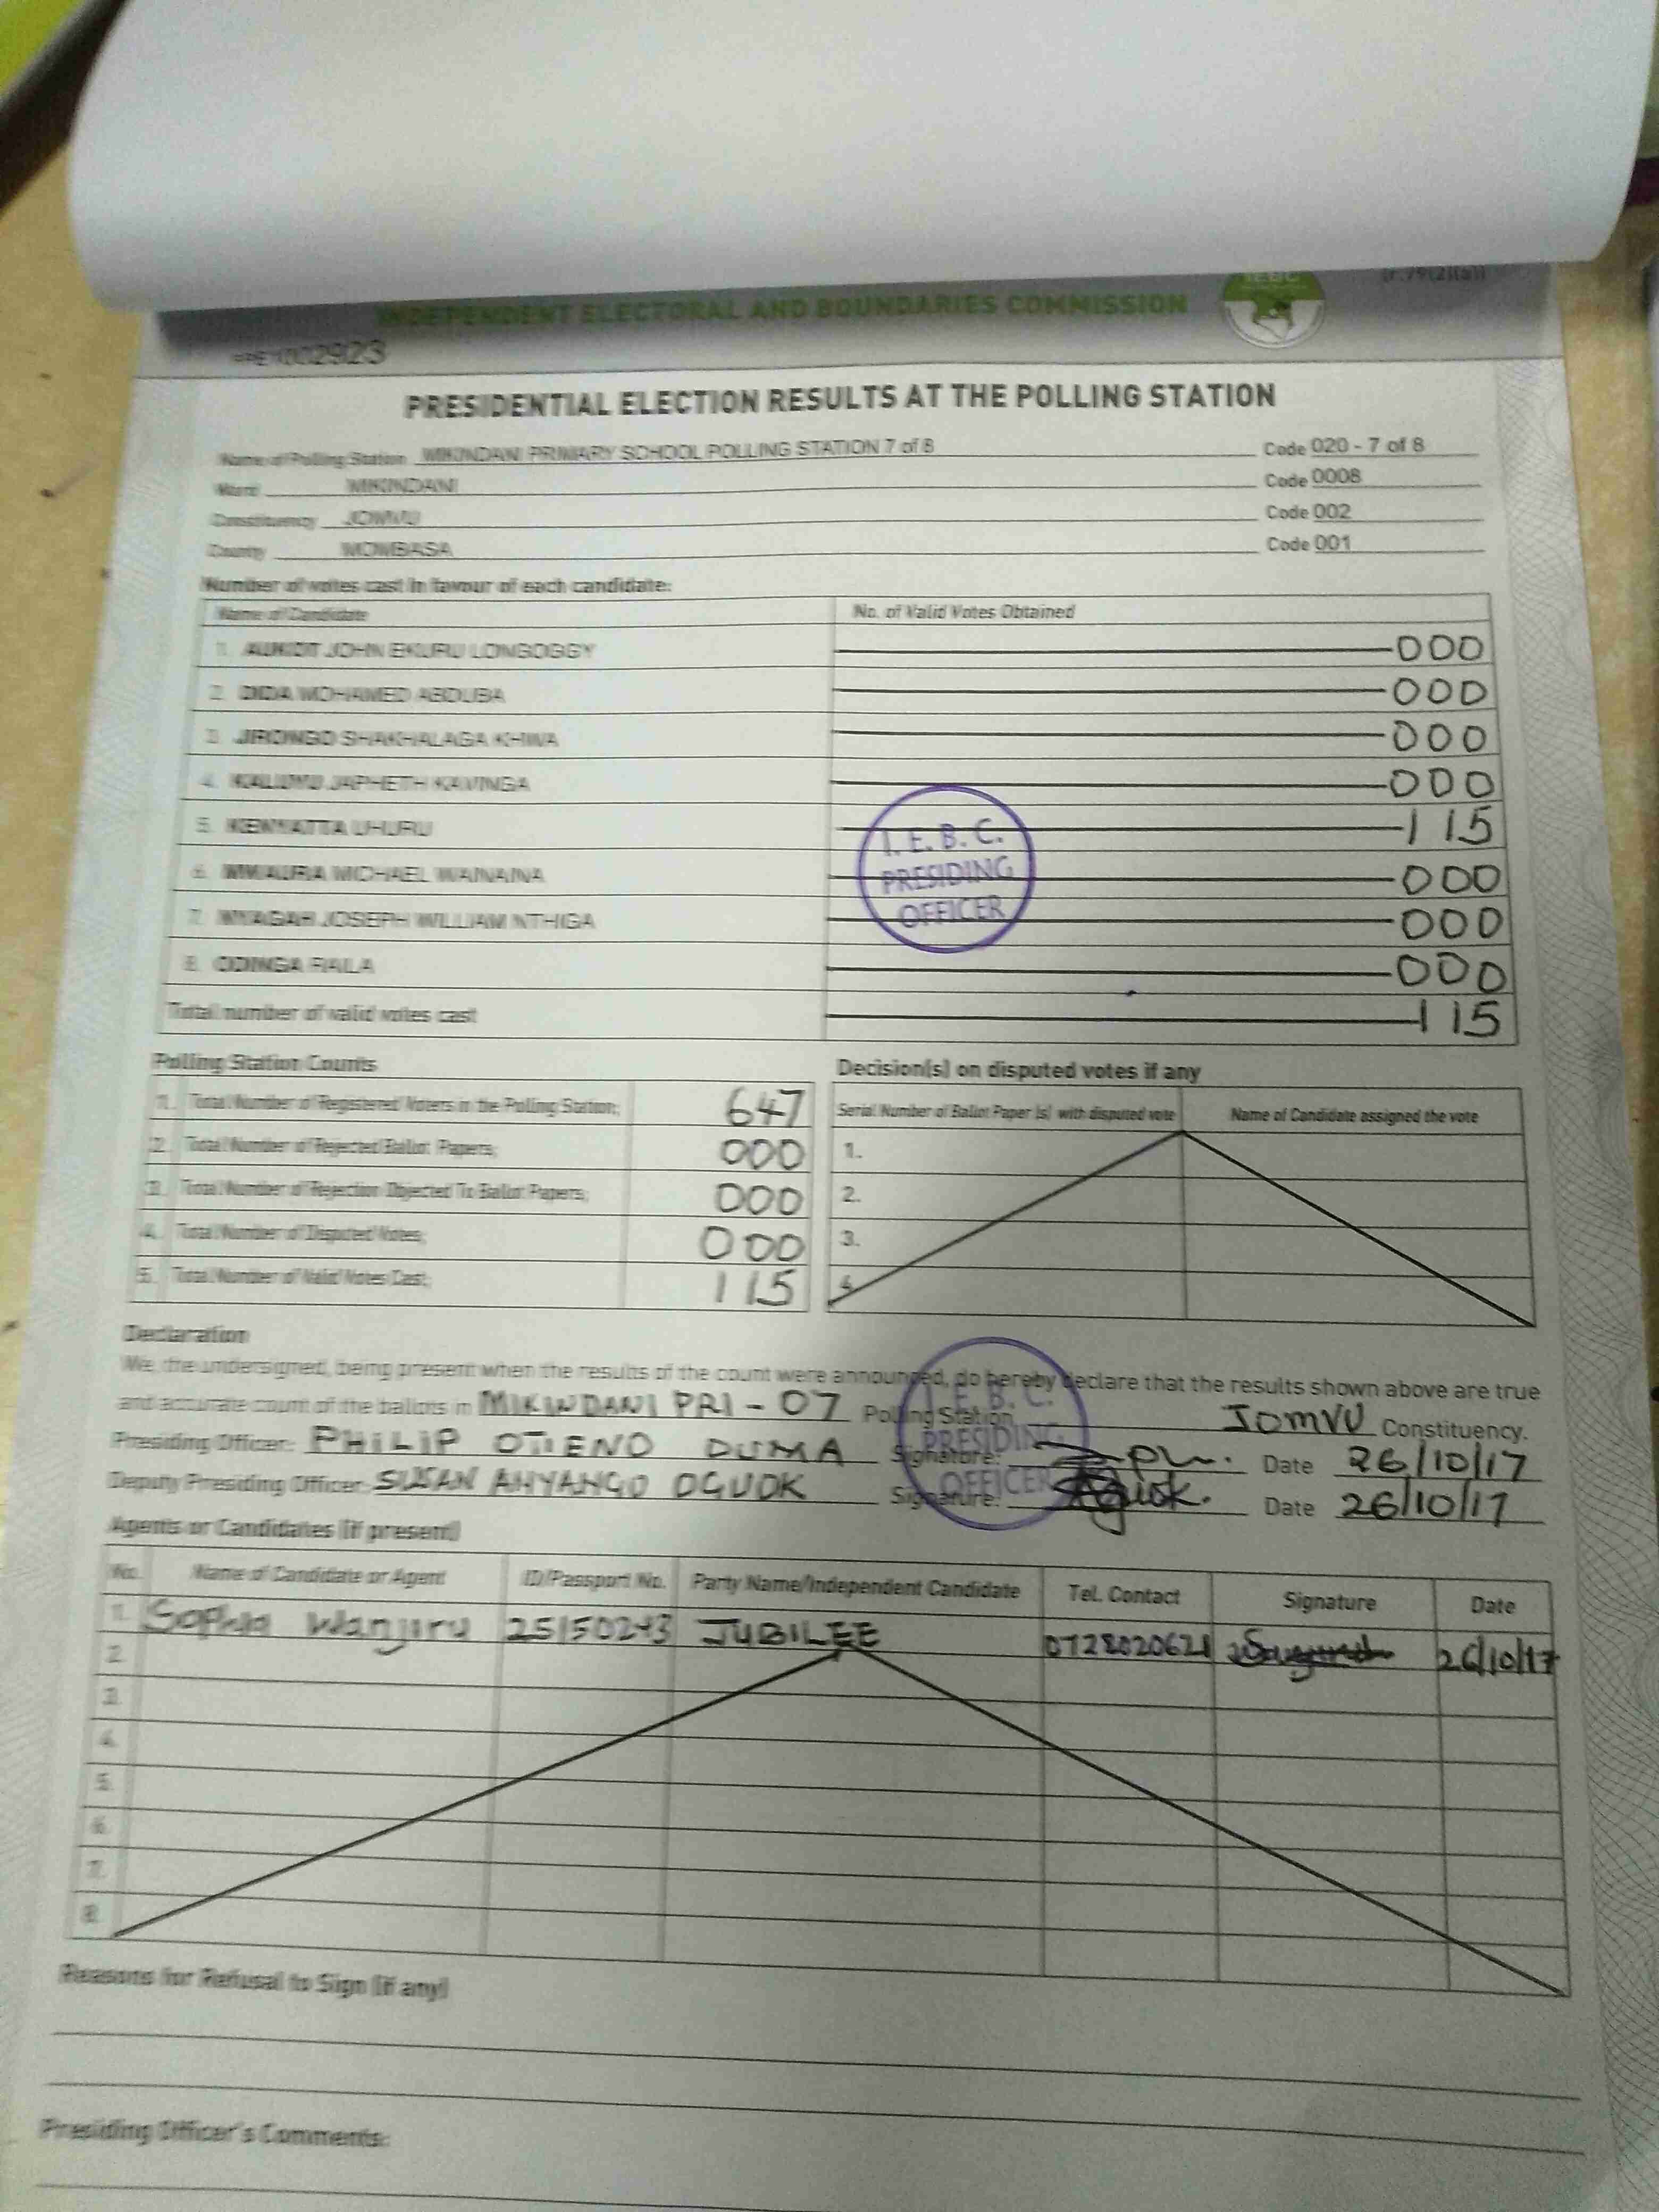 INDEPENDENT ELECTORAL AND BOUNDARIES COMMISSION
PRESIDENTIAL ELECTION RESULTS AT THE POLLING STATION
Name of Polling Station MIKINDANI PRIMARY SCHOOL POLLING STATION 7 of 8 Code 020 - 7 of 8
Ward MIKINDANI Code 0008
Constituency JOMVU Code 002
County MOMBASA Code 001
Number of votes cast in favour of each candidate:
Name of Candidate No. of Valid Votes Obtained
1. AUKOT JOHN EKURU LONGOGGY 000
2. DIDA MOHAMED ABDUBA 000
3. JIRONGO SHAKHALAGA KHWA 000
4. KALUYU JAPHETH KAVINGA 000
5. KENYATTA UHURU 115
6. MWAURA MICHAEL WAINAINA 000
7. NYAGAH JOSEPH WILLIAM NTHIGA 000
8. ODINGA RAILA 000
Total number of valid votes cast 115
I. E. B. C.
PRESIDING
OFFICER
Polling Station Counts
1. Total Number of Registered Voters in the Polling Station; 647
2. Total Number of Rejected Ballot Papers; 000
3. Total Number of Rejection Objected To Ballot Papers; 000
4. Total Number of Disputed Votes; 000
5. Total Number of Valid Votes Cast; 115
Decision(s) on disputed votes if any
Serial Number of Ballot Paper (s) with disputed vote Name of Candidate assigned the vote
1.
2.
3.
4.
Declaration
We, the undersigned, being present when the results of the count were announced, do hereby declare that the results shown above are true
and accurate count of the ballots in MIKINDANI PRI - 07 Polling Station JOMVU Constituency.
Presiding Officer: PHILIP OTIENO DUMA Signature: Date 26/10/17
Deputy Presiding Officer: SUSAN ANYANGO OGUOK Signature: Date 26/10/17
I. E. B. C.
PRESIDING
OFFICER
Agents or Candidates (if present)
No. Name of Candidate or Agent ID/Passport No. Party Name/Independent Candidate Tel. Contact Signature Date
1. Sophia Wanjiru 25150243 JUBILEE 0728020621 26/10/17
2.
3.
4.
5.
6.
7.
8.
Reasons for Refusal to Sign (if any)
Presiding Officer's Comments: